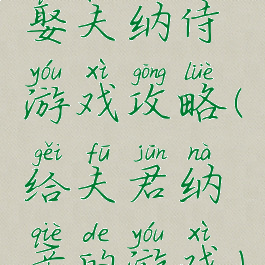 娶夫纳侍
yóu xì gōng lüè
游戏攻略(
gěi fū jūn nà
给夫君纳
qiè de yóu xì
妾的游戏)